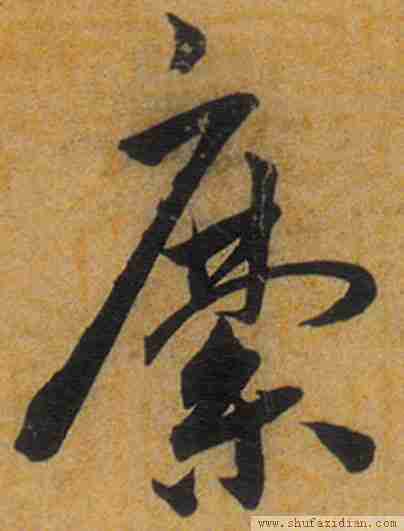 縻
www.shufazidian.com